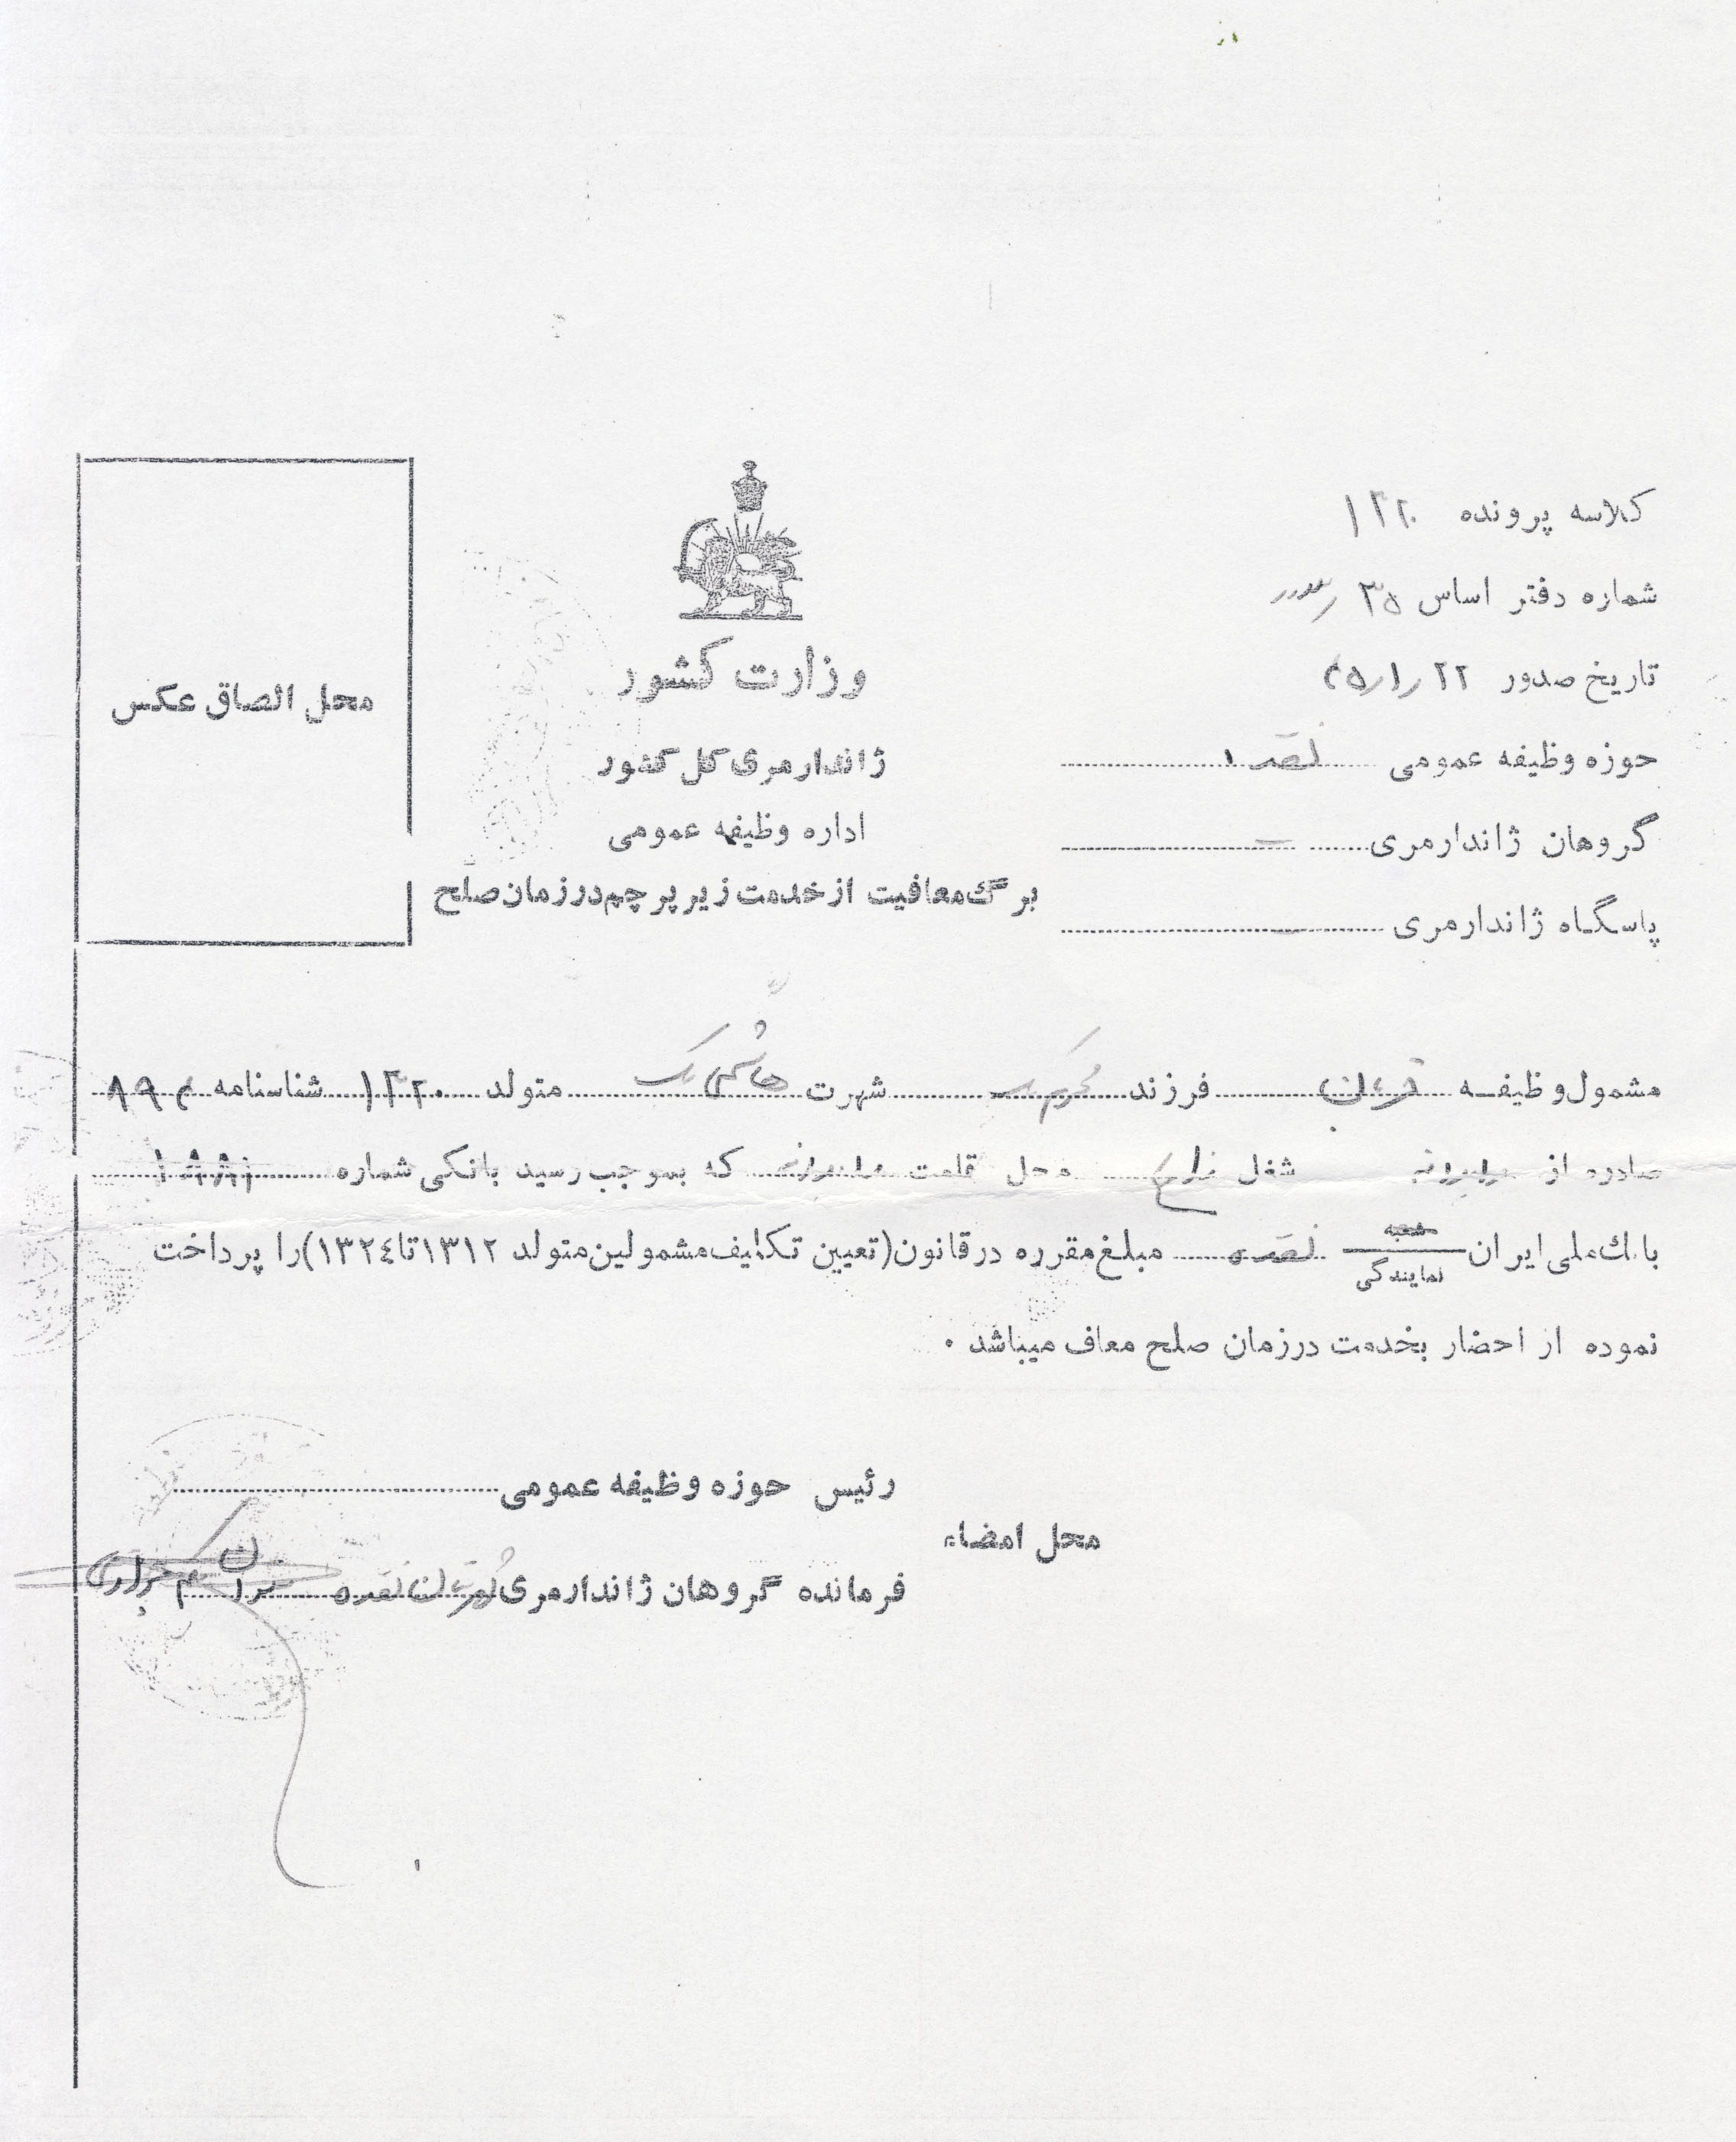 کلاسه پرونده ۱۳۲۰
شماره دفتر اساس ۳۵
تاریخ صدور ۲۲/۱/۴۵
حوزه وظیفه عمومی نقده
گروهان ژاندارمری
پاسگاه ژاندارمری
وزارت کشور
ژاندارمری کل کشور
اداره وظیفه عمومی
برگ معافیت از خدمت زیر پرچم در زمان صلح
محل الصاق عکس
مشمول وظیفه قربان فرزند شهرت متولد ۱۳۲۰ شناسنامه ۸۹۴
صادره از شغل زارع محل اقامت که بموجب رسید بانکی شماره
بانك ملی ایران شعبه نمایندگی نقده مبلغ مقرره در قانون (تعیین تکلیف مشمولین متولد ۱۳۱۲ تا ۱۳۲٤) را پرداخت
نموده از احضار بخدمت در زمان صلح معاف میباشد .
رئیس حوزه وظیفه عمومی
محل امضاء
فرمانده گروهان ژاندارمری نقده